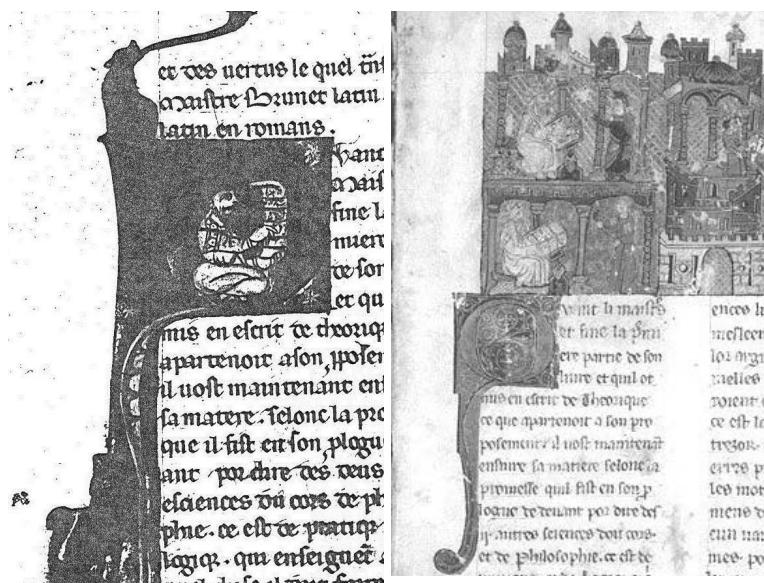 et des uertus le quel
Maistre Brunet latin
latin en romans.
uant
Mais
fine l
miere
de son
et qu
mis en escrit de theoriq
apartenoit a son pposem
il uost maintenant en
sa matere. selonc la pro
que il fist en son plogu
ant por dire des deus
esciences du cors de ph
phie. ce est de pratiq
logiq. qui enseignet
vant li maistre
et fine la
ere partie de son
liure et quil ot
mis en escrit de Theorique
ce que apartenoit a son pro
posement. il uost maintenāt
ensiure sa matiere selonc la
promesse quil fist en son p
logue de deuant por dire des
ij. autres sciences dou cors
et de philosophie. ce est de
ences li
meslee
lor
nelles
roient
ce est la
trezor.
erres p
les mot
mens d
cun
mes. po